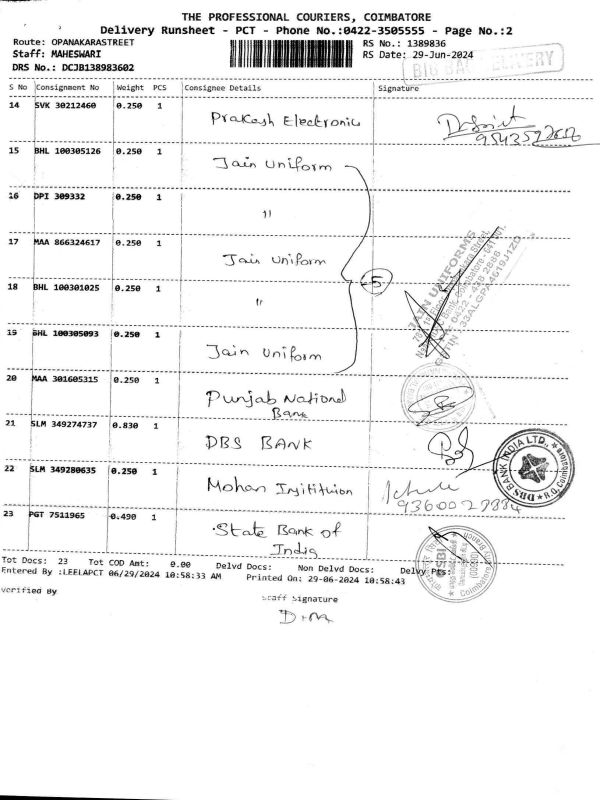 THE PROFESSIONAL COURIERS, COIMBATORE
Delivery Runsheet - PCT - Phone No.:0422-3505555 - Page No.:2
Route: OPANAKARASTREET RS No.: 1389836
Staff: MAHESWARI RS Date: 29-Jun-2024
DRS No.: DCJB138983602
BIG BAG DELIVERY
S No Consignment No Weight PCS Consignee Details Signature
14 SVK 30212460 0.250 1 Prakash Electronic
15 BHL 100305126 0.250 1 Jain Uniform
16 DPI 309332 0.250 1 "
17 MAA 866324617 0.250 1 Jain Uniform
18 BHL 100301025 0.250 1 " 5
JAIN UNIFORMS
19 BHL 100305093 0.250 1 Jain Uniform
20 MAA 301605315 0.250 1 Punjab National
Bank
21 SLM 349274737 0.830 1 DBS BANK
DBS BANK INDIA LTD.,
22 SLM 349280635 0.250 1 Mohan Institution
23 PGT 7511965 0.490 1 State Bank of
India
SBI
Tot Docs: 23 Tot COD Amt: 0.00 Delvd Docs: Non Delvd Docs: Delvy Pts:
Entered By :LEELAPCT 06/29/2024 10:58:33 AM Printed On: 29-06-2024 10:58:43
Verified By Staff Signature